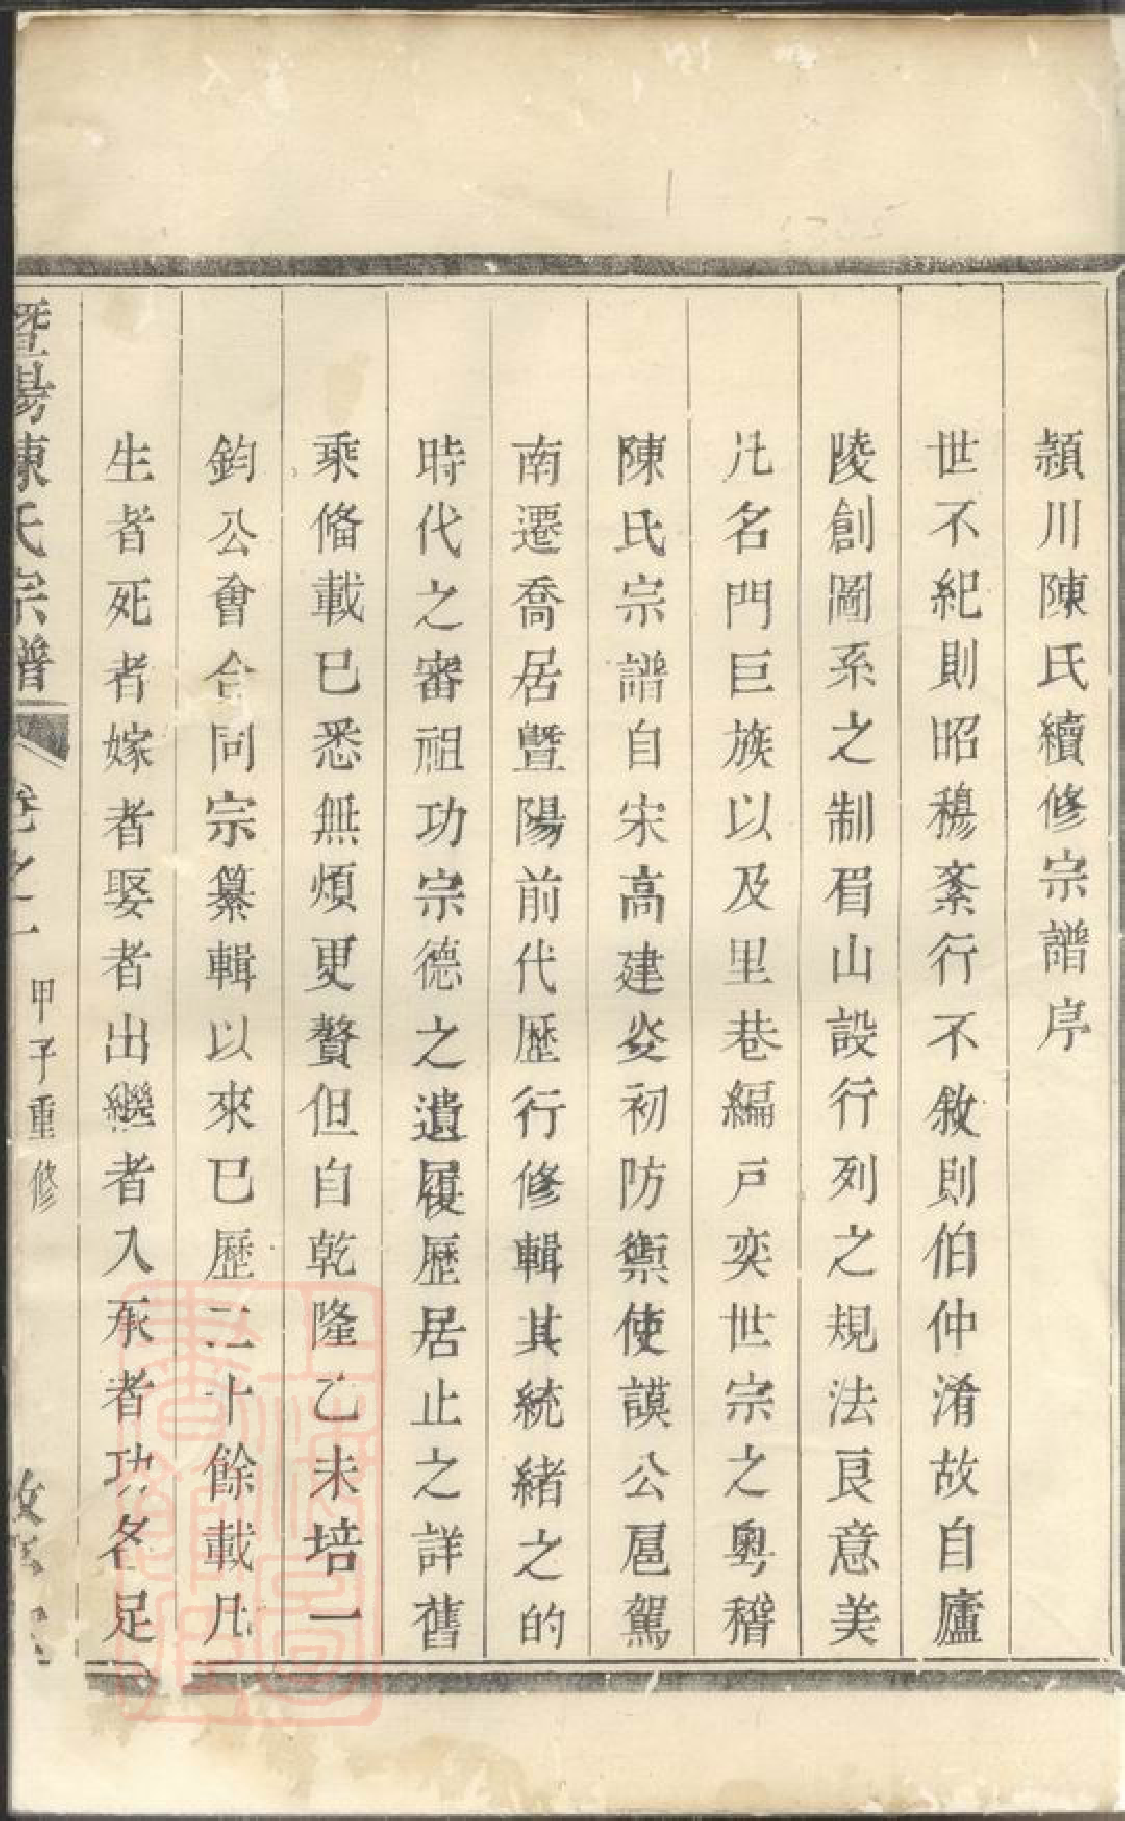 潁川陳氏續修宗譜序
世不紀則昭穆紊行不敘則伯仲淆故自廬
陵創圖系之制眉山設行列之規法良意美
凡名門巨族以及里巷編戶奕世宗之粵稽
陳氏宗譜自宋高建炎初防禦使謨公扈駕
南遷喬居暨陽前代歷行修輯其統緒之的
時代之審祖功宗德之遺履歷居止之詳舊
乘俻載已悉無煩更贅但自乾隆乙未培一
鈞公會合同宗纂輯以來已歷二十餘載凡
生者死者嫁者娶者出繼者入承者功名足
暨陽陳氏宗譜 卷之一 甲子重修